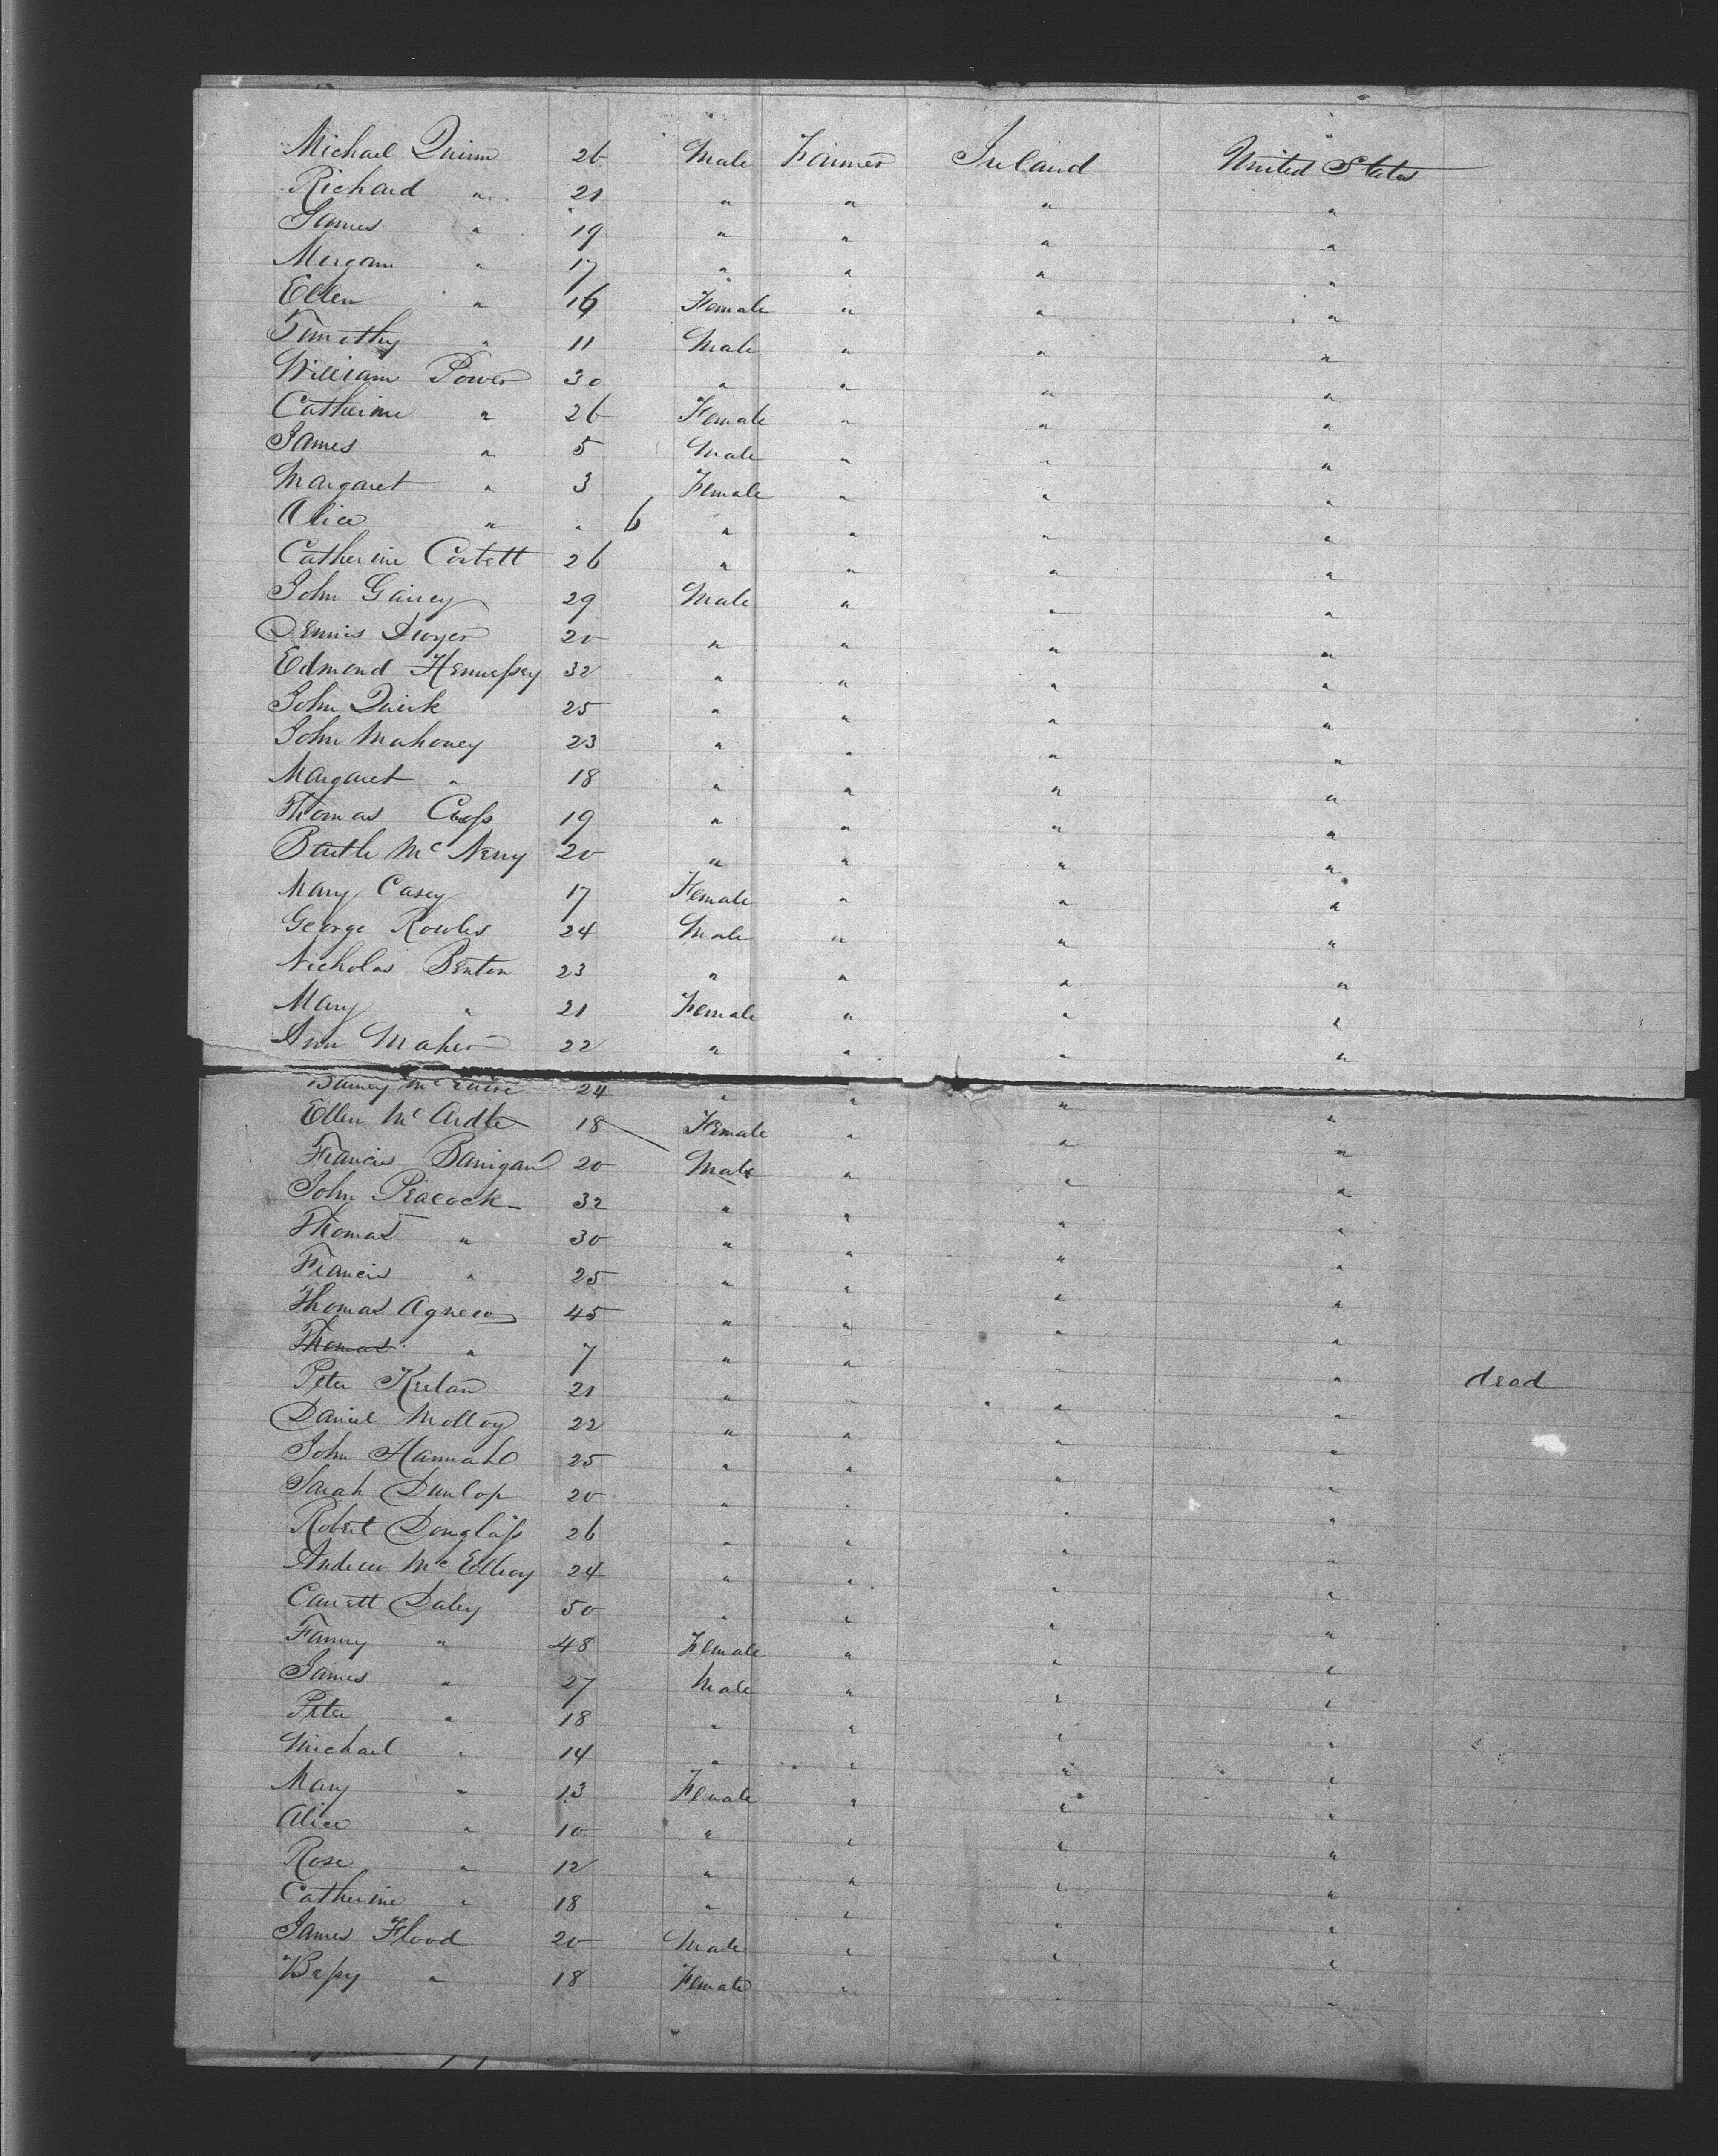 Michael Quinn 26 Male Farmer Ireland United States
Richard " 21 " " " "
James " 19 " " " "
Morgan " 17 " " " "
Ellen " 16 Female " " "
Timothy " 11 Male " " "
William Power 30 " " " "
Catherine " 26 Female " " "
James " 5 Male " " "
Margaret " 3 Female " " "
Alice " " 6 " " " "
Catherine Corbett 26 " " " "
John Gairey 29 Male " " "
Dennis Dwyer 20 " " " "
Edmond Hennessey 32 " " " "
John Quirk 25 " " " "
John Mahoney 23 " " " "
Margaret " 18 " " " "
Thomas 19 " " " "
Bartle Mc Nerny 20 " " " "
Mary Casey 17 Female " " "
George Rowles 24 Male " " "
Nicholas Benton 23 " " " "
Mary " 21 Female " " "
Ann Maher 22 " " " "
Barney Mc 24 " " " "
Ellen Mc Ardle 18 Female " " "
Francis Banigan 20 Male " " "
John Peacock 32 " " " "
Thomas " 30 " " " "
Francis " 25 " " " "
Thomas Agnew 45 " " " "
Thomas " 7 " " " " dead
Peter Keelan 21 " " " "
Daniel Molloy 22 " " " "
John Hannah 25 " " " "
Sarah Dunlop 20 " " " "
Robert Douglass 26 " " " "
Andrew Mc Elroy 24 " " " "
Garrett Daley 50 " " " "
Fanny " 48 Female " " "
James " 27 Male " " "
Peter " 18 " " " "
Michael " 14 " " " "
Mary " 13 Female " " "
Alice " 10 " " " "
Rose " 12 " " " "
Catherine " 18 " " " "
James Flood 20 Male " " "
Bessy " 18 Female " " "